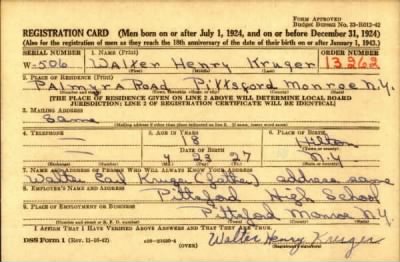 FORM APPROVED
Budget Bureau No. 33-R012-42
REGISTRATION CARD (Men born on or after July 1, 1924, and on or before December 31, 1924)
(Also for the registration of men as they reach the 18th anniversary of the date of their birth on or after January 1, 1943.)
SERIAL NUMBER 1. NAME (Print) ORDER NUMBER
W-506 Walter Henry Kruger 13,262
(First) (Middle) (Last)
2. PLACE OF RESIDENCE (Print)
Palmyra Road Pittsford Monroe N.Y.
[THE PLACE OF RESIDENCE GIVEN ON LINE 2 ABOVE WILL DETERMINE LOCAL BOARD
JURISDICTION; LINE 2 OF REGISTRATION CERTIFICATE WILL BE IDENTICAL]
3. MAILING ADDRESS
Same
(Mailing address if other than place indicated on line 2. If same, insert word same)
4. TELEPHONE 5. AGE IN YEARS 6. PLACE OF BIRTH
18 Hilton
DATE OF BIRTH
4 23 27 N.Y.
7. NAME AND ADDRESS OF PERSON WHO WILL ALWAYS KNOW YOUR ADDRESS
Walter Kruger (father) address same
8. EMPLOYER'S NAME AND ADDRESS
Pittsford High School
9. PLACE OF EMPLOYMENT OR BUSINESS
Pittsford Monroe N.Y.
(Number and street or R. F. D. number) (Town) (County) (State)
I AFFIRM THAT I HAVE VERIFIED ABOVE ANSWERS AND THAT THEY ARE TRUE.
DSS Form 1 (Rev. 11-16-42) (OVER) Walter Henry Kruger
(Registrant's signature)